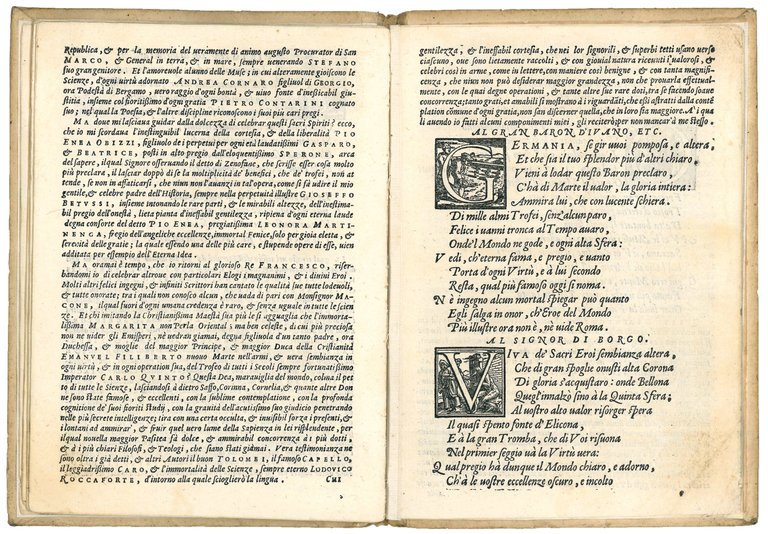 Republica, & per la memoria del ueramente di animo augusto Procurator di San
MARCO, & General in terra, & in mare, sempre uenerando STEFANO
suo grangenitore. Et l'amoreuole alunno delle Muse; in cui alteramente gioiscono le
Scienze, d'ogni uirtù adornato ANDREA CORNARO figliuol di GEORGIO,
ora Podestà di Bergamo, uero raggio d'ogni bontà, & uiuo fonte d'inesticabil giu-
stitia, insieme col fioritissimo d'ogni gratia PIETRO CONTARINI cognato
suo; nel qual la Poesia, & l'altre discipline riconoscono i suoi più cari pregi.
MA doue mi lasciaua guidar dalla dolcezza di celebrar questi sacri Spiriti? ecco,
che io mi scordaua l'inestinguibil lucerna della cortesia, & della liberalità PIO
ENEA OBIZZI, figliuolo dei perpetui per ogni età laudatissimi GASPARO,
& BEATRICE, posti in alto pregio dall'eloquentissimo SPERONE, arca
del sapere, il qual Signore osseruando il detto di Zenofane, che scrisse esser cosa molto
più preclara, il lasciar doppò di se la moltiplicità de' benefici, che de' trofei, non at-
tende, se non in affaticarsi, che niun non l'auanzi in tal'opera, come si fà udire il mio
gentile, & celebre padre dell'Historia, sempre nella perpetuità illustre GIOSEFFO
BETVSSI, insieme intonando le rare parti, & le mirabili altezze, dell'inestima-
bil pregio dell'onestà, lieta pianta d'ineffabil gentilezza, ripiena d'ogni eterna laude
degna consorte del detto PIO ENEA, pregiatissima LEONORA MARTI-
NENGA, fregio dell'angeliche eccellenze, immortal Fenice, sola per gioia eletta, &
serecità delle gratie; la quale essendo una delle più care, e stupende opere di esse, uien
additata per essempio dell'Eterna Idea.
MA oramai è tempo, che io ritorni al glorioso Re FRANCESCO, riser-
bandomi io di celebrar altroue con particolari Elogi i magnanimi, & i diuini Eroi.
Molti altri felici ingegni, & infiniti Scrittori han cantato le qualità sue tutte lodeuoli,
& tutte onorate; tra i quali non conosco alcun, che uada di pari con Monsignor MA-
CONE, il qual fuori d'ogni umana credenza è raro, & senza uguale in tutte le scien-
ze. Et chi imitando la Christianissima Maestà sua più le si agguaglia che l'immorta-
lissima MARGARITA non Perla Oriental; ma ben celeste, di cui più preciosa
non ne uider gli Emisperi, nè uedran giamai, degna figliuola d'un tanto padre, ora
Duchessa, & moglie del maggior Principe, & maggior Duca della Christianità
EMANUEL FILIBERTO nuouo Marte nell'armi, & uera sembianza in
ogni uirtù, & in ogni operation sua, del Trofeo di tutti i Secoli sempre fortunatissimo
Imperator CARLO QVINTO? Questa Dea, marauiglia del mondo, colma il pet
to di tutte le Scienze, lasciandosi à dietro Saffo, Corinna, Cornelia, & quante altre Dõne
ne sono state famose, & eccellenti, con la sublime contemplatione, con la profonda
cognitione de' suoi fioriti studij, con la grauità dell'acutissimo suo giudicio penetrando
nelle più secrete intelligenze; tira con una certa occulta, & inuisibil forza i presenti, &
i lontani ad ammirar', & fruir quel uero lume della Sapienza in lei risplendente, per
il qual nouella maggior Pasitea fà dolce, & ammirabil concorrenza à i più dotti,
& à i più chiari Filosofi, & Teologi, che siano stati giàmai. Vera testimonianza ne
sono oltra i già detti, & altri Autori il buon TOLOMEI, il famoso CAPELLO,
il leggiadrissimo CARO, & l'immortalità delle Scienze, sempre eterno LODOVICO
ROCCAFORTE, d'intorno alla quale scioglierò la lingua. Cui
gentilezza, & l'ineffabil cortesia, che nei lor signorili, & superbi tetti usano uerso
ciascuno, oue sono lietamente raccolti, & con giouial natura riceuuti i ualorosi, &
celebri così in arme, come in lettere, con maniere così benigne, & con tanta magnifi-
cenza, che niun non può desiderar maggior grandezza, non che più onorata uertuosità,
con le quai degne operationi, & tante altre sue rare doti, tra se facendo soaue
concorrenza; tanto grati, et amabili si mostrano à i riguardãti, che essi astratti dalla contẽ
plation cõmune d'ogni gratia, non san discerner quella, che in loro sia maggiore. A' i qua
li auendo io fatti alcuni componimenti miei, gli reciterò, per non mancar'à me stesso.
AL GRAN BARON D'IVANO, ETC.
GERMANIA, se gir uuoi pomposa, e altera,
Et che sia il tuo splendor più d'altri chiaro;
Vieni à lodar questo Baron preclaro,
C'hà di Marte il ualor, la gloria intiera:
Ammira lui, che con lucente schiera.
Di mille almi Trofei, senz'alcun paro,
Felice i uanni tronca al Tempo auaro,
Onde'l Mondo ne gode, e ogni alta Sfera:
Vedi, ch'eterna fama, e pregio, e uanto
Porta d'ogni Virtù, e à lui secondo
Resta, qual più famoso oggi si noma.
Nè ingegno alcun mortal spiegar può quanto
Egli salga in onor, ch'Eroe del Mondo
Più illustre ora non è, nè uide Roma.
AL SIGNOR DI BORGO.
VIVA de' Sacri Eroi sembianza altera,
Che di gran spoglie onusti alta Corona
Di gloria s'acquistaro: onde Bellona
Quegl'innalzò sino à la Quinta Sfera;
Al uostro alto ualor risorger spera
Il quasi spento fonte d'Elicona,
E à la gran Tromba, che di Voi risuona
Nel primier seggio uà la Virtù uera:
Qual pregio hà dunque il Mondo chiaro, e adorno,
C'hà le uostre eccellenze oscuro, e incolto